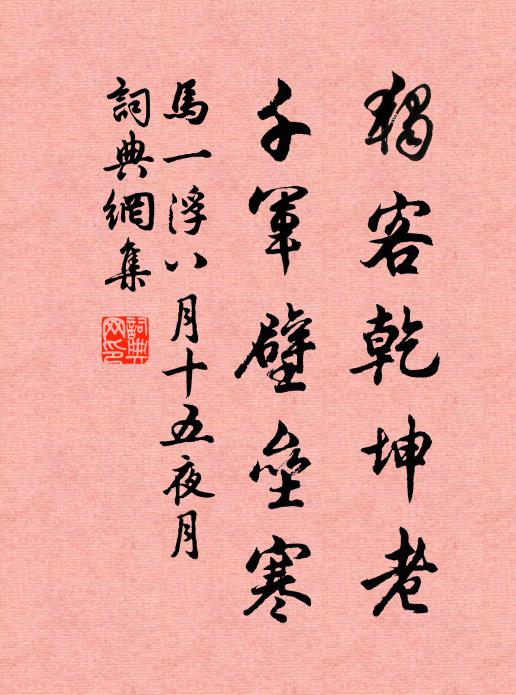 獨客乾坤老
千軍壁壘寒
馬一浮八月十五夜月
詞典網集
詞典网印